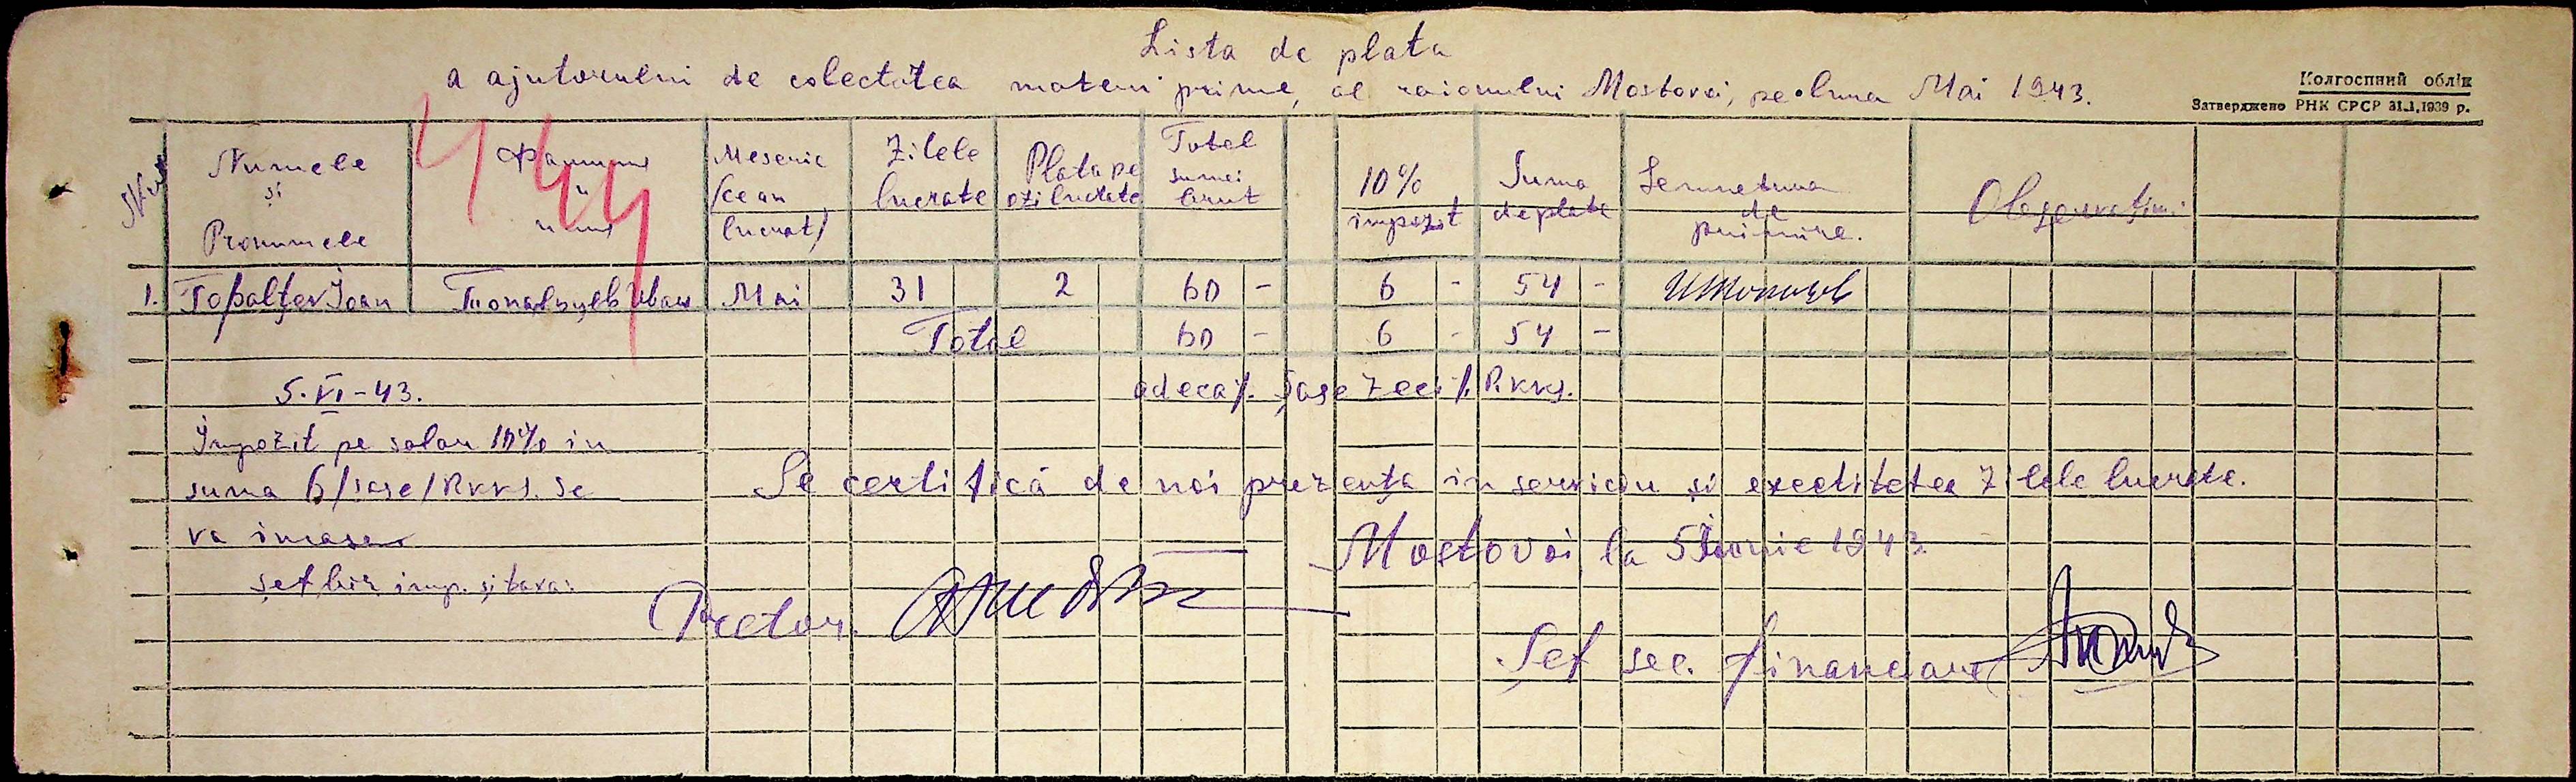 Lista de plata
a ajutorului de colectatea materii prime, al raionului Mostovoi, pe luna Mai 1943.
Колгоспний облік
Затверджено РНК СРСР 31.1.1939 р.
444
Numele și Pronumele
Meseria /ce au lucrat/
Zilele lucrate
Plata pe o zi lucrate
Total sumei brut
10% impozit
Suma de plata
Semnetura de primire.
Observațiuni
1. Topalțev Ioan Топалцев Иван Mai 31 2 60 - 6 - 54 -
Total 60 - 6 - 54 -
adeca/. Șase Zeci /. Rkks.
5.VI-43.
Impozit pe salar 10% in
suma 6/șase/Rkks. Se
va incasa
șef bir. imp. și taxa:
Se certifică de noi prezența in serviciu și exectitatea Zilele lucrate.
Mostovoi la 5 Iunie 1943
Pretor.
Șef sec. financiare